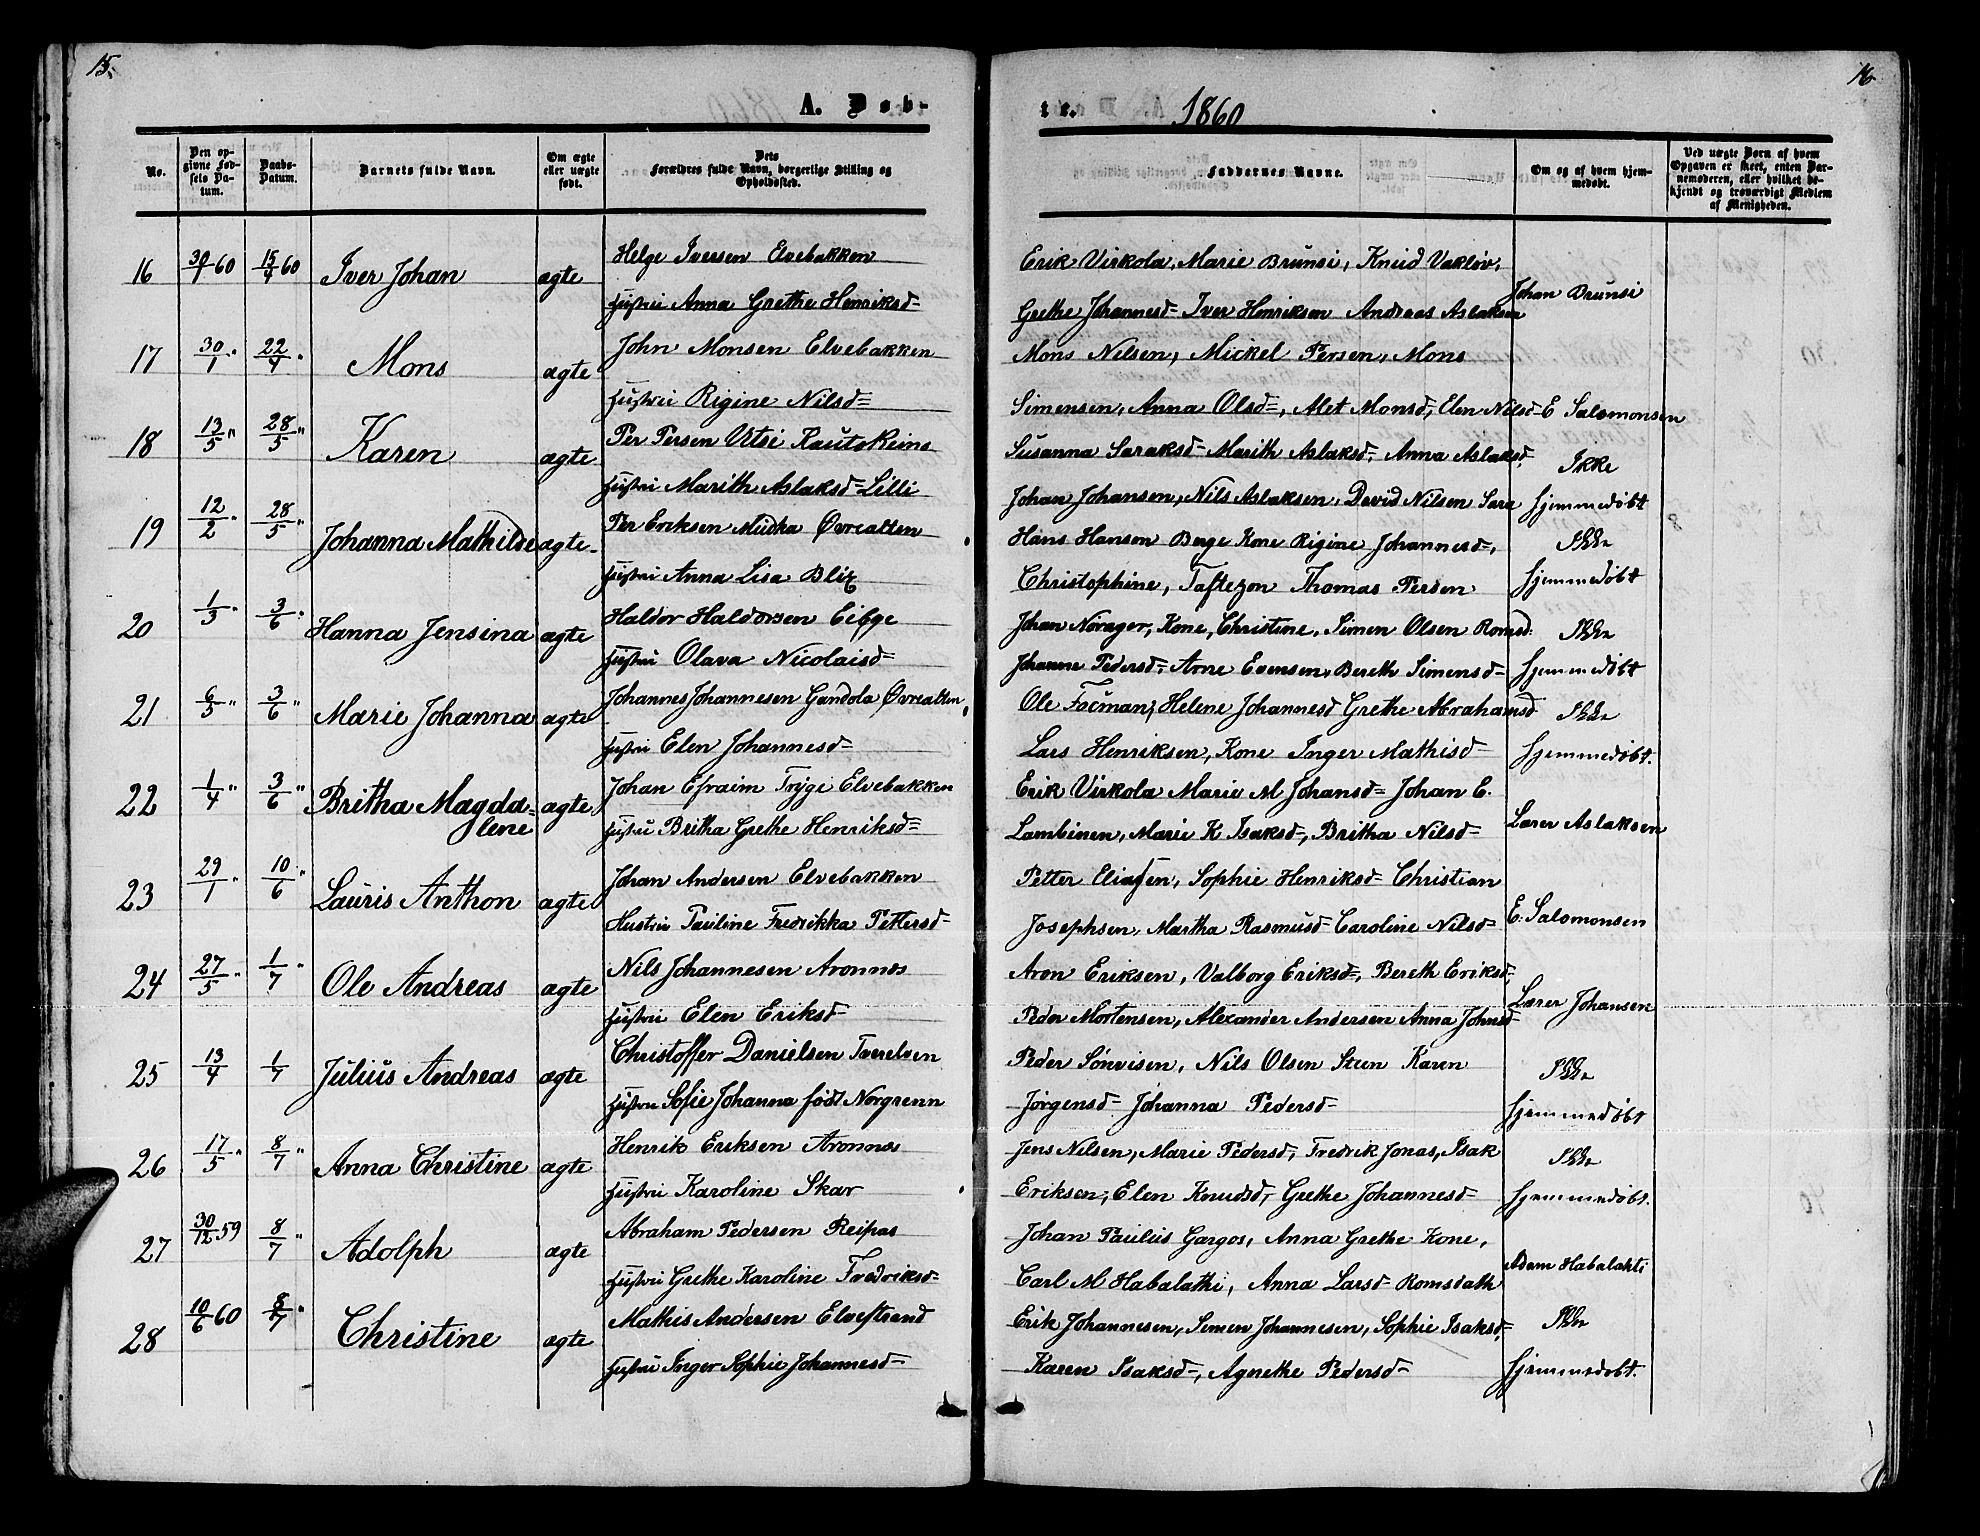 15.
16
A. Døb-
te. 1860
No.
Den op-
givne Fød-
sels Da-
tum.
Daabs-
Datum.
Barnets fulde Navn.
Om ægte
eller uægte
født.
Dets
Forældres fulde Navn, borgerlige Stilling og
Opholdssted.
Faddernes Navne.
Om og af hvem hjem-
medøbt.
Ved uægte Børn af hvem
Opgaven er skeet, enten Bar-
nemoderen, eller hvilket be-
kjendt og troværdigt Medlem
af Menigheden.
16 30/1 60 15/4 60 Iver Johan ægte Helge Iversen Elvebakken
Hustru Anna Grethe Henriksd=
Erik Virkola, Marie Brunsi, Knud Vakløv,
Grethe Johannesd= Iver Henriksen Andreas Aslaksen
Johan Brunsi
17 30/1 " 22/4 " Mons ægte John Monsen Elvebakken
Hustru Rigine Nilsd=
Mons Nilsen, Mickel Persen, Mons
Simensen, Anna Olsd=, Met Monsd, Elen Nilsd= E Salomonsen
18 13/5 " 28/5 " Karen ægte Per Persen Utsi Kautokeino
Hustru Marith Aslaksd= Lilli
Susanna Saraksd= Marith Aslaksd, Anna Aslaksd,
Johan Johansen, Nils Aslaksen, David Nilsen Sara
Ikke
hjemmedøbt
19 12/2 " 28/5 " Johanna Mathilde ægte Per Eriksen Mudka Øvrealten
Hustru Anna Lisa Blix
Hans Hansen Berge Kone Rigine Johannesd=,
Christophine, Taftezon Thomas Persen
Ikke
hjemmedøbt
20 1/3 " 3/6 " Hanna Jensina ægte Haldor Haldorsen Eibye
Hustru Olava Nicolaisd=
Johan Norager, Kone, Christine, Simen Olsen Romsd.
Johanne Pedersd=, Arne Evensen, Bereth Simensd=
Ikke
hjemmedøbt
21 6/5 " 3/6 " Marie Johanna ægte Johannes Johannesen Gandola Øvrealten,
Hustru Elen Johannesd=
Ole Facman, Helene Johannesd Grethe Abrahamsd
Lars Henriksen, Kone Inger Mathisd=
Ikke
hjemmedøbt.
22 1/4 " 3/6 " Britha Magda-
lene ægte Johan Efraim Tryge Elvebakken
Hustru Britha Grethe Henriksd=
Erik Virkola Marie M Johansd= Johan E.
Lambinen, Marie K Isaksd=, Britha Nilsd=
Lærer Aslaksen
23 29/1 " 10/6 " Lauris Anthon ægte Johan Andersen Elvebakken
Hustru Pauline Fredrikka Pettersd=
Petter Eliassen, Sophie Henriksd= Christian
Josephsen, Martha Rasmusd= Caroline Nilsd=
E. Salomonsen
24 27/5 " 1/7 " Ole Andreas ægte Nils Johannesen Aronnes
Hustru Elen Eriksd=
Aron Eriksen, Valborg Eriksd=, Bereth Eriksd=,
Peder Mortensen, Alexander Andersen Anna Johnsd=
Lærer Johansen
25 13/4 1/7 Julius Andreas ægte Christoffer Danielsen Tverelven
Hustru Sofie Johanna født Norgrenn
Peder Sønvisen, Nils Olsen Steen Karen
Jørgensd= Johanna Pedersd=
Ikke
hjemmedøbt
26 17/5 " 8/7 " Anna Christine ægte Henrik Eriksen Aronnes
Hustru Karoline Skar
Jens Nilsen, Marie Pedersd=, Fredrik Jonas, Isak
Eriksen, Elen Knudsd, Grethe Johannesd=
Ikke
hjemmedøbt.
27 30/12 59 8/7 Adolph ægte Abraham Pedersen Reipas
Hustru Grethe Karoline Fredriksd=
Johan Paulus Gargos, Anna Grethe Kone,
Carl M Habalathi, Anna Larsd= Romsdath
Adam Habalahti
28 10/6 60 8/7 " Christine ægte Mathis Andersen Elvestrand
Hustru Inger Sophie Johannesd=
Erik Johannesen, Simen Johannesen, Sophie Isaksd=,
Karen Isaksd=, Agnethe Pedersd=
Ikke
hjemmedøbt.